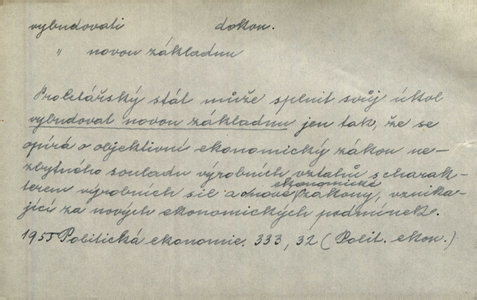 vybudovati dokon.
" novou základnu
Proletářský stát může splnit svůj úkol
vybudovat novou základnu jen tak, že se
opírá o objektivní ekonomický zákon ne-
zbytného souladu výrobních vztahů s charak-
terem výrobních sil a nové ekonomické zákony, vznika-
jící za nových ekonomických podmínek.
1955 Politická ekonomie. 333, 32 (Polit. ekon.)